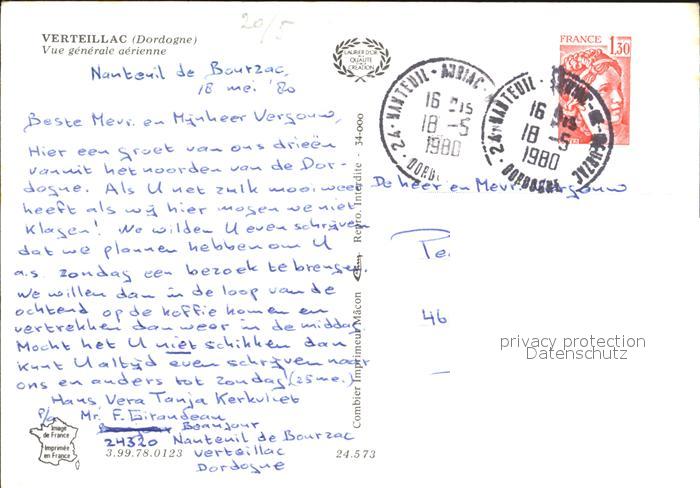 20/5
VERTEILLAC (Dordogne)
Vue générale aérienne
Nanteuil de Bourzac,
18 mei '80
Beste Mevr. en Mijnheer Vergouw,
Hier een groet van ons drieën
vanuit het noorden van de Dor-
dogne. Als U net zulk mooi weer
heeft als wij hier mogen we niet
klagen! We wilden U even schrijven
dat we plannen hebben om U
a.s. zondag een bezoek te brengen.
We willen dan in de loop van de
ochtend op de koffie komen en
vertrekken dan weer in de middag.
Mocht het U niet schikken dan
kunt U altijd even schrijven naar
ons en anders tot zondag (25 mei.)
Hans Vera Tanja Kerkvliet
p/a Mr. F. Girandeau
Beaujour
24320 Nanteuil de Bourzac
Verteillac
Dordogne
Image
de France
Imprimée
en France
3.99.78.0123
24.573
LAURIER D'OR
DE LA
QUALITE
DE
CREATION
Combier Imprimeur Mâcon
Repro. Interdite - 34-000
24 - NANTEUIL - AURIAC-
16 H15
18 -5
1980
DORDO
24 NANTEUIL - AURIAC-DE-BOURZAC
16 H15
18 -5
1980
DORDOGNE
FRANCE
1,30
De heer en Mevr. Vergouw
46
privacy protection
Datenschutz